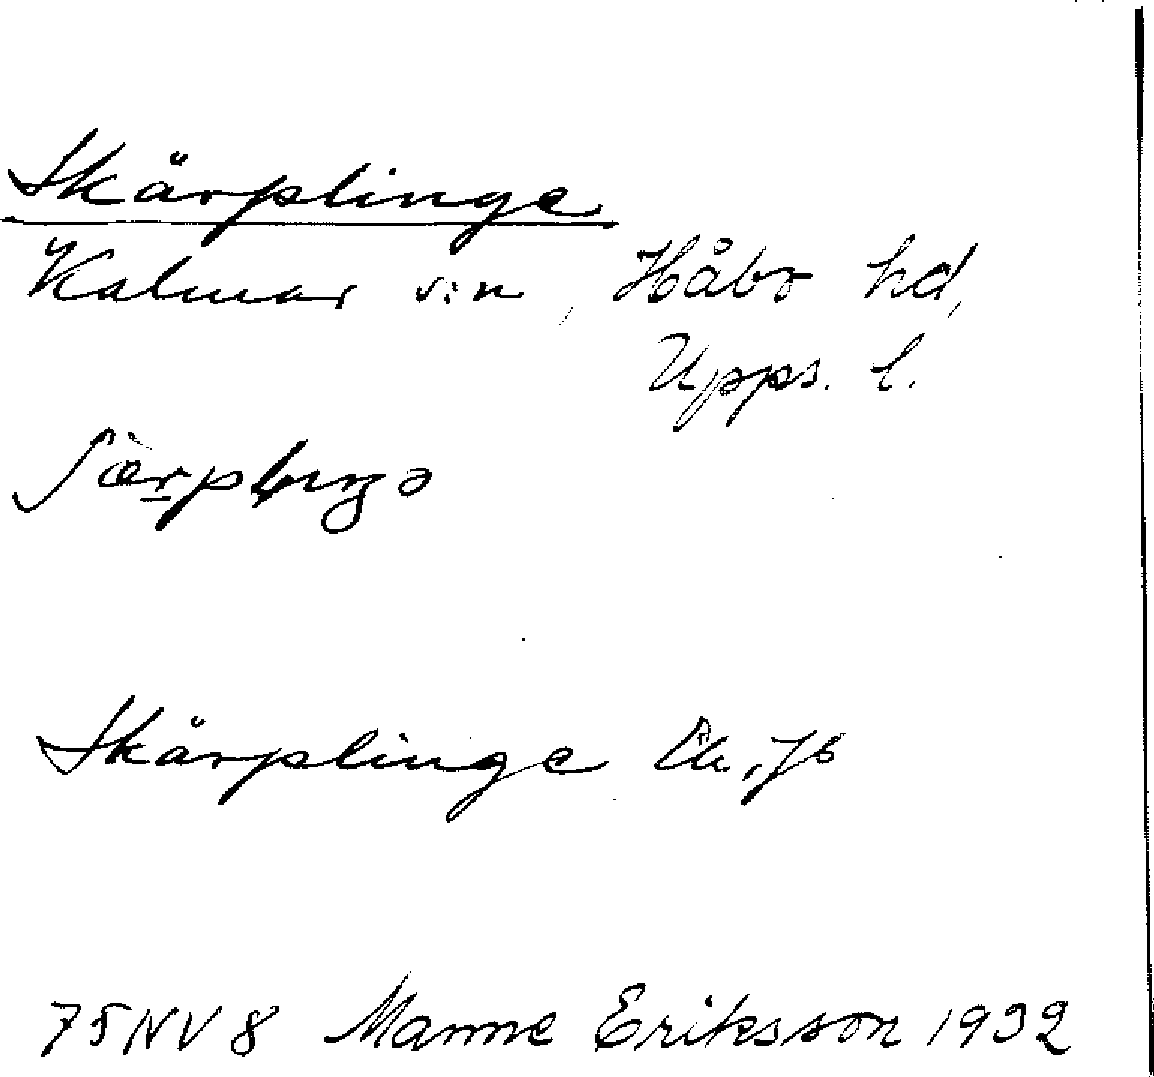 Skärplinge
Kalmar s:n, Håbo hd,
Upps. l.
Skärplinge Ek, Jb
75NV8 Manne Eriksson 1932